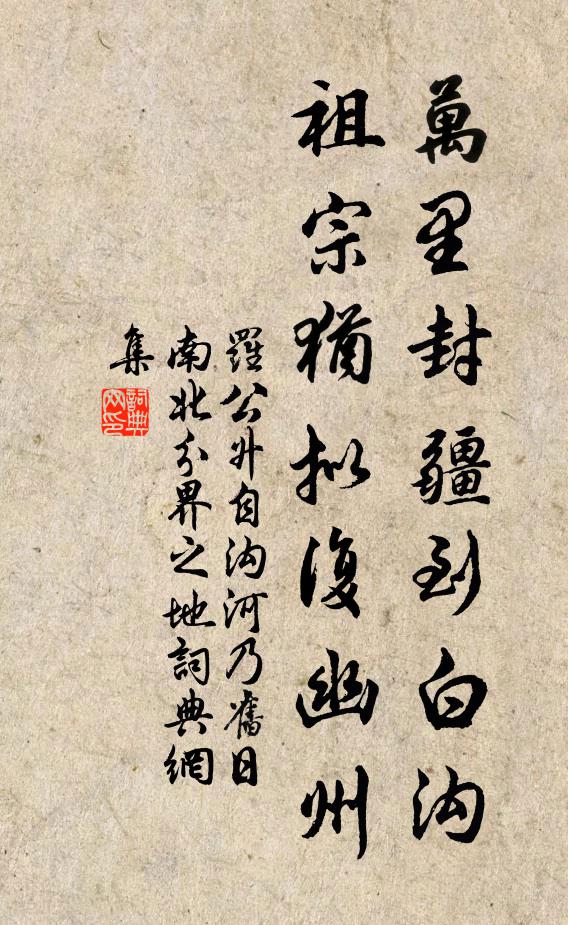 萬里封疆到白沟
祖宗猶拟復幽州
羅公升自沟河乃舊日
南北分界之地詞典網
集
詞典
网印